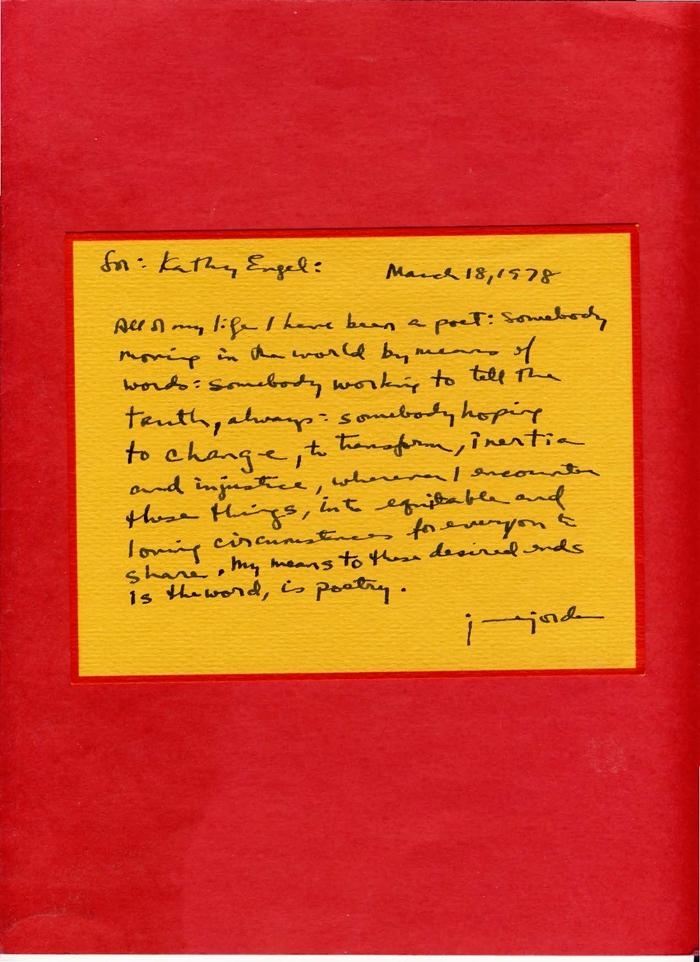 for: Kathy Engel:
March 18, 1978
All of my life I have been a poet: Somebody
moving in the world by means of
words: somebody working to tell the
truth, always: somebody hoping
to change, to transform, inertia
and injustice, wherever I encounter
these things, into equitable and
loving circumstances for everyone to
share. My means to these desired ends
is the word, is poetry.
junejordan